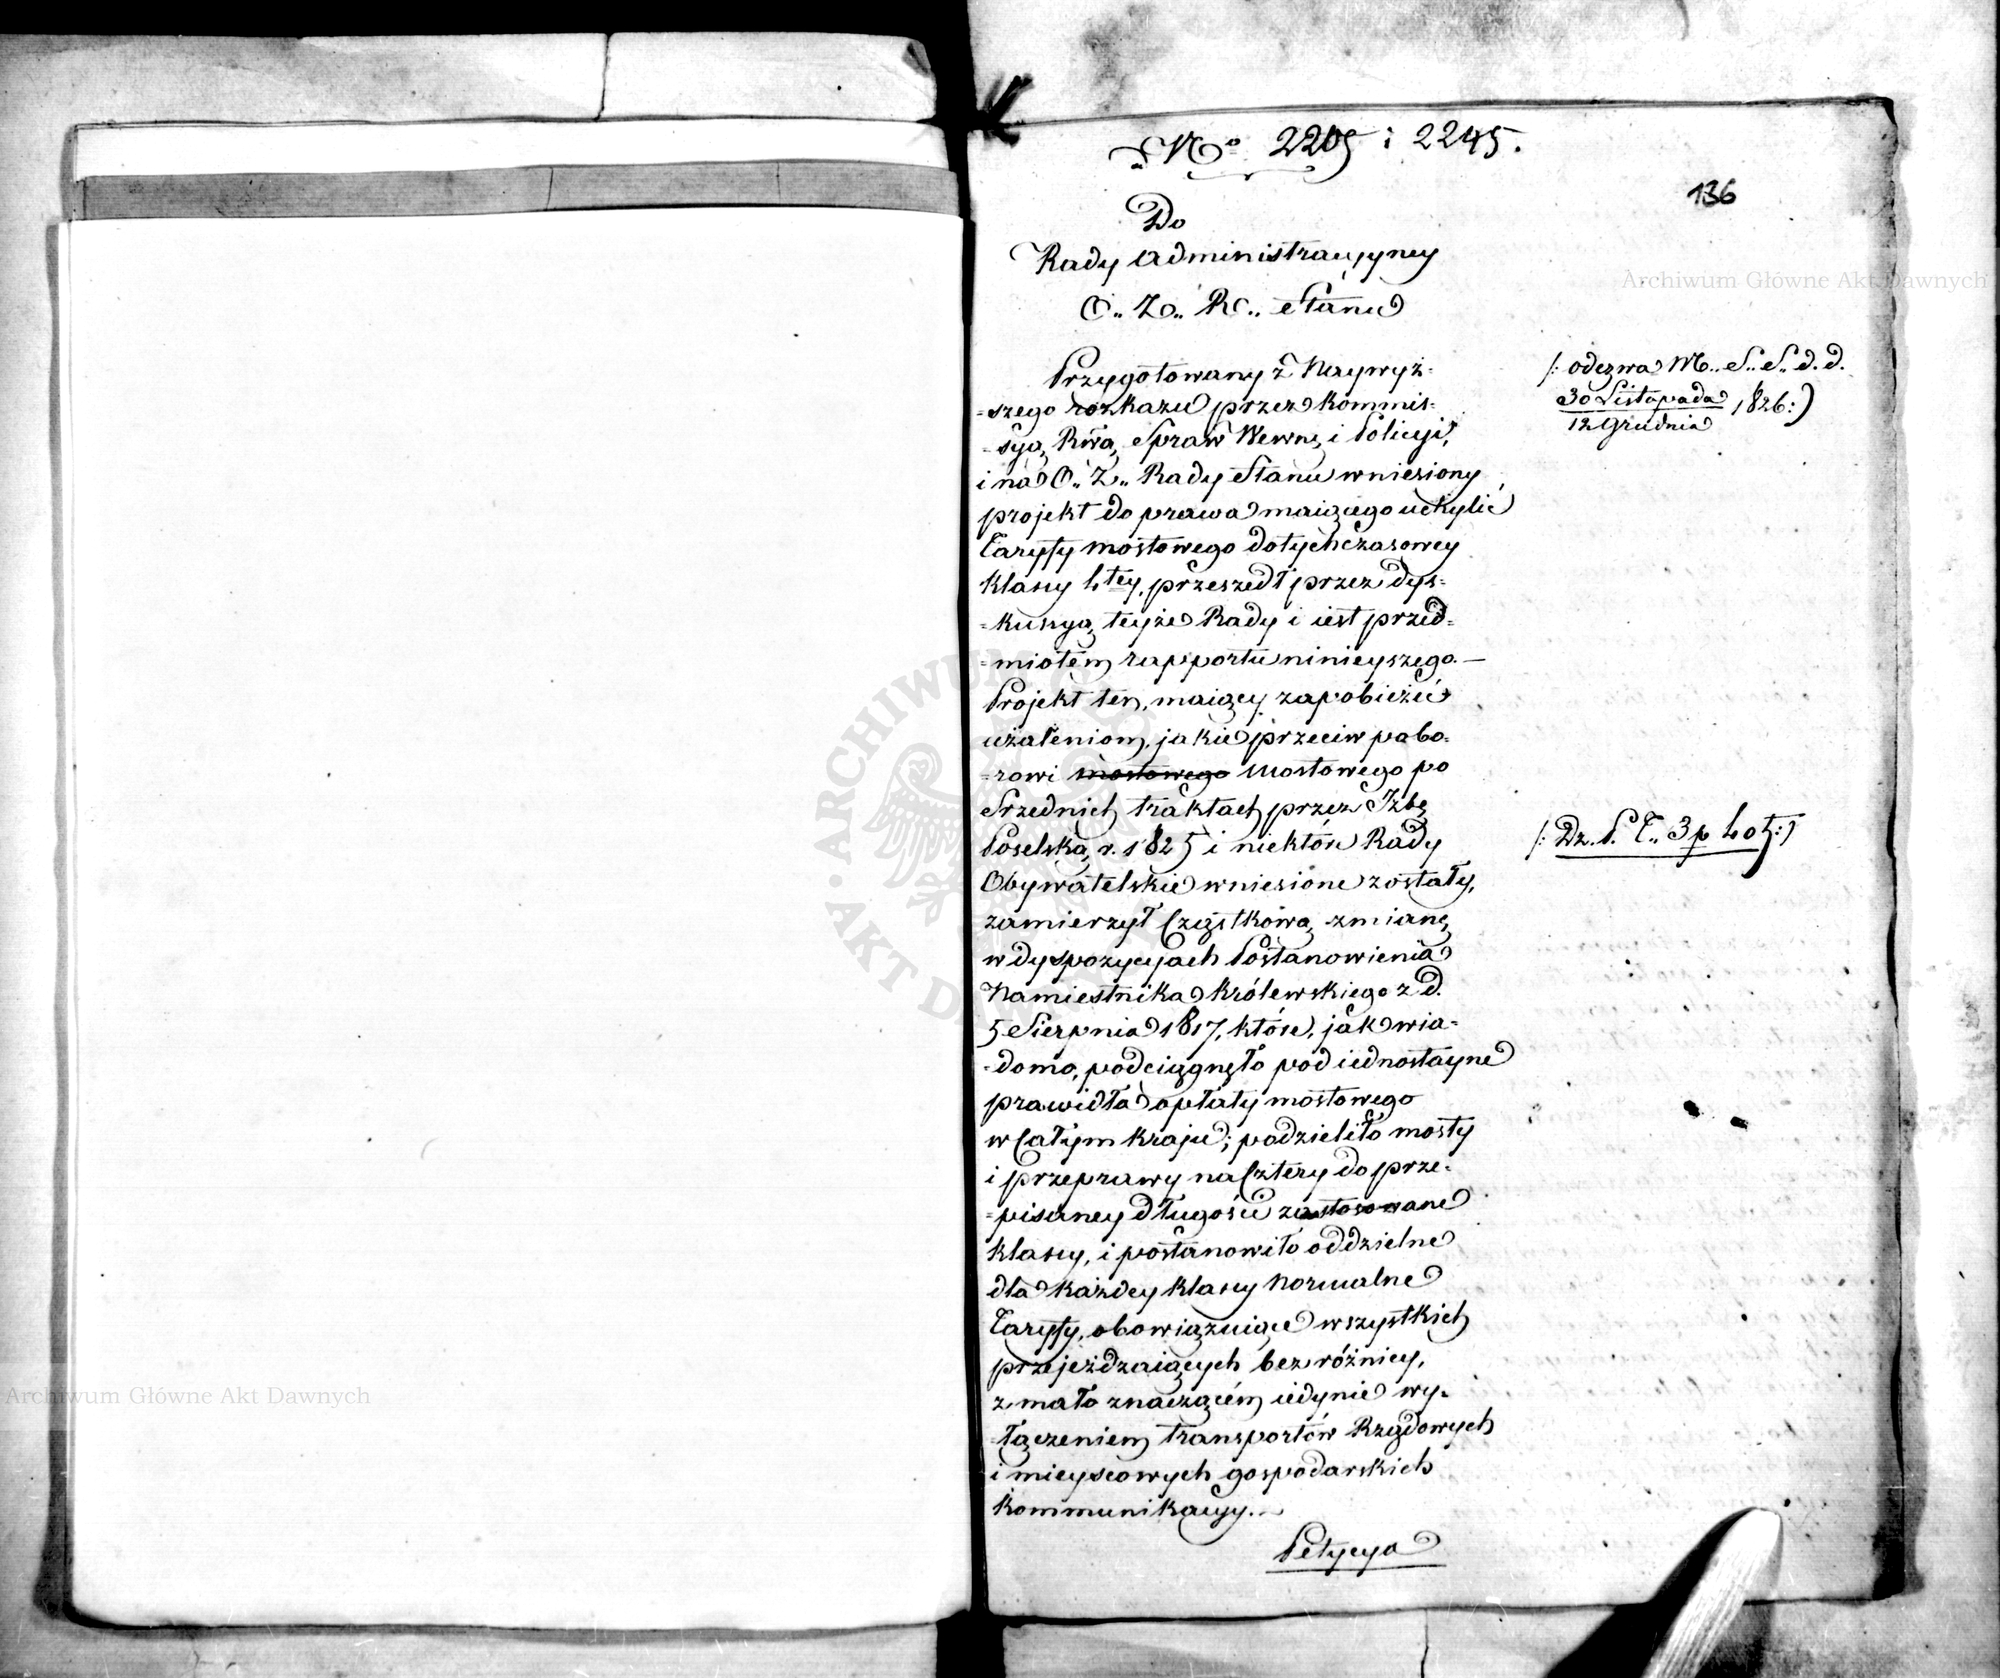 No 2205 i 2245.
136
Do
Rady Administracyyney
O.. Z.. R.. Stanu
Przygotowany z Naywyż-
-szego rozkazu przez Kommis-
-syą Rwą Spraw Wewnę i Policyi,
i na O.. Z.. Rady Stanu wniesiony
projekt do prawa maiącego uchylić
Taryfy mostowego dotychczasowey
klassy 4tey, przeszedł przez dys-
-kussyą teyże Rady i iest przed-
-miotem rapportu ninieyszego.—
Projekt ten, maiący zapobieżeć
użaleniom, jakie przeciw pobo-
-rowi mostowego mostowego po
Srzednich traktach przez Izbę
Poselską r. 1825 i niektóre Rady
Obywatelskie wniesione zostały,
zamierzył Cząstkową zmianę
w dyspozycyjach Postanowienia
Namiestnika Królewskiego z d.
5 Sierpnia 1817, które, jak wia-
-domo, podciągnęło pod iednostayne
prawidła opłaty mostowego
w Całym kraju; podzieliło mosty
i przeprawy na Cztery do prze-
-pisaney długości zastosowane
klassy, i postanowiło oddzielne
dla każdey klassy normalne
Taryfy, obowiązuiące wszystkich
przejeżdzaiących bez różnicy,
z mało znaczącém iedynie wy-
-łączeniem transportów Rządowych
i mieyscowych gospodarskich
kommunikacyy.—
Petycya
/: odezwa M.. S.. S.. d. d.
30 Listopada
12 Grudnia 1826 :/
/: Dz. P. T.. 3 p
Archiwum Główne Akt Dawnych
Archiwum Główne Akt Dawnych
ARCHIWUM
AKT D